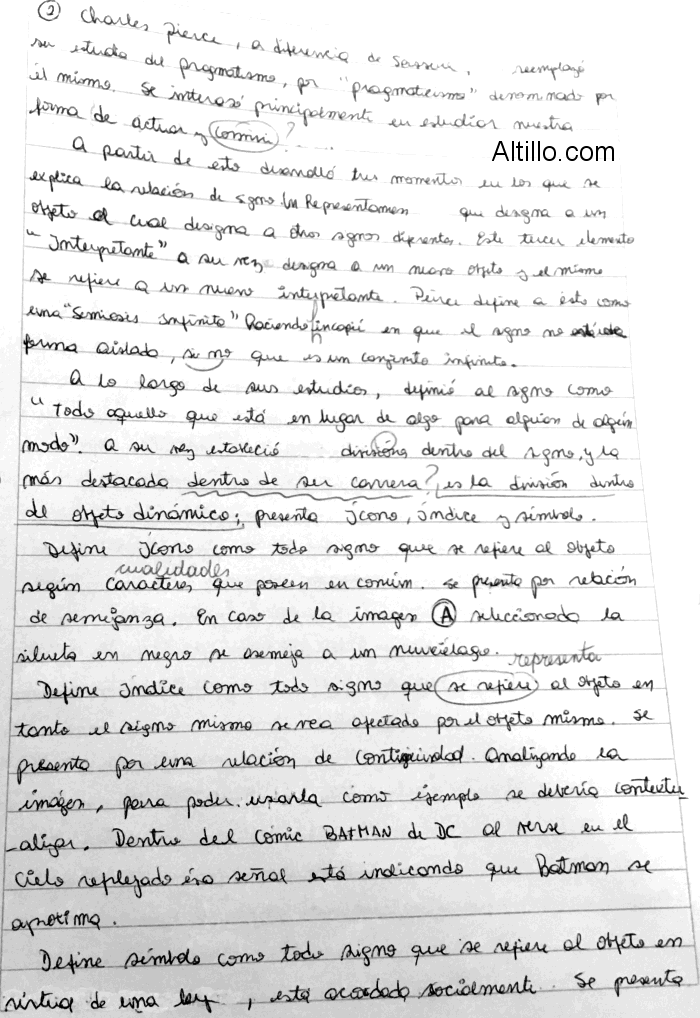 ② Charles Pierce, a diferencia de Saussure, reemplazó
su estudio del pragmatismo, por "pragmaticismo" denominado por
él mismo. Se interesó principalmente en estudiar nuestra
forma de actuar y ?
Altillo.com
A partir de esto desarrolló tres momentos en los que se
explica la relación de signo. Un Representamen que designa a un
objeto el cual designa a otros signos diferentes. Este tercer elemento
"Interpretante" a su vez designa a un nuevo objeto y el mismo
se refiere a un nuevo interpretante. Peirce define a esto como
una "Semiosis Infinita" haciendo hincapié en que el signo no
forma aislado, si no que es un conjunto infinito.
A lo largo de sus estudios, definió al signo como
"Todo aquello que está en lugar de algo para alguien de algún
modo". A su vez estableció divisións dentro del signo, y la
más destacada dentro de ser carrera? es la división dentro
de objeto dinámico; presenta Ícono, índice y símbolo.
Define Ícono como todo signo que se refiere al objeto
cualidades
según caracteres que poseen en común. Se presenta por relación
de semejanza. En caso de la imagen Ⓐ seleccionada la
silueta en negro se asemeja a un murciélago.
representa
Define índice como todo signo que se refiere al objeto en
tanto el signo mismo se vea afectado por el objeto mismo. Se
presenta por una relación de contigüidad. Analizando la
imágen, para poder usarla como ejemplo se debería contextu
-alizar. Dentro del Cómic BATMAN de DC al verse en el
cielo reflejado ésa señal está indicando que Batman se
aproxima.
Define símbolo como todo signo que se refiere al objeto en
virtud de una ley, está acordado socialmente. Se presenta